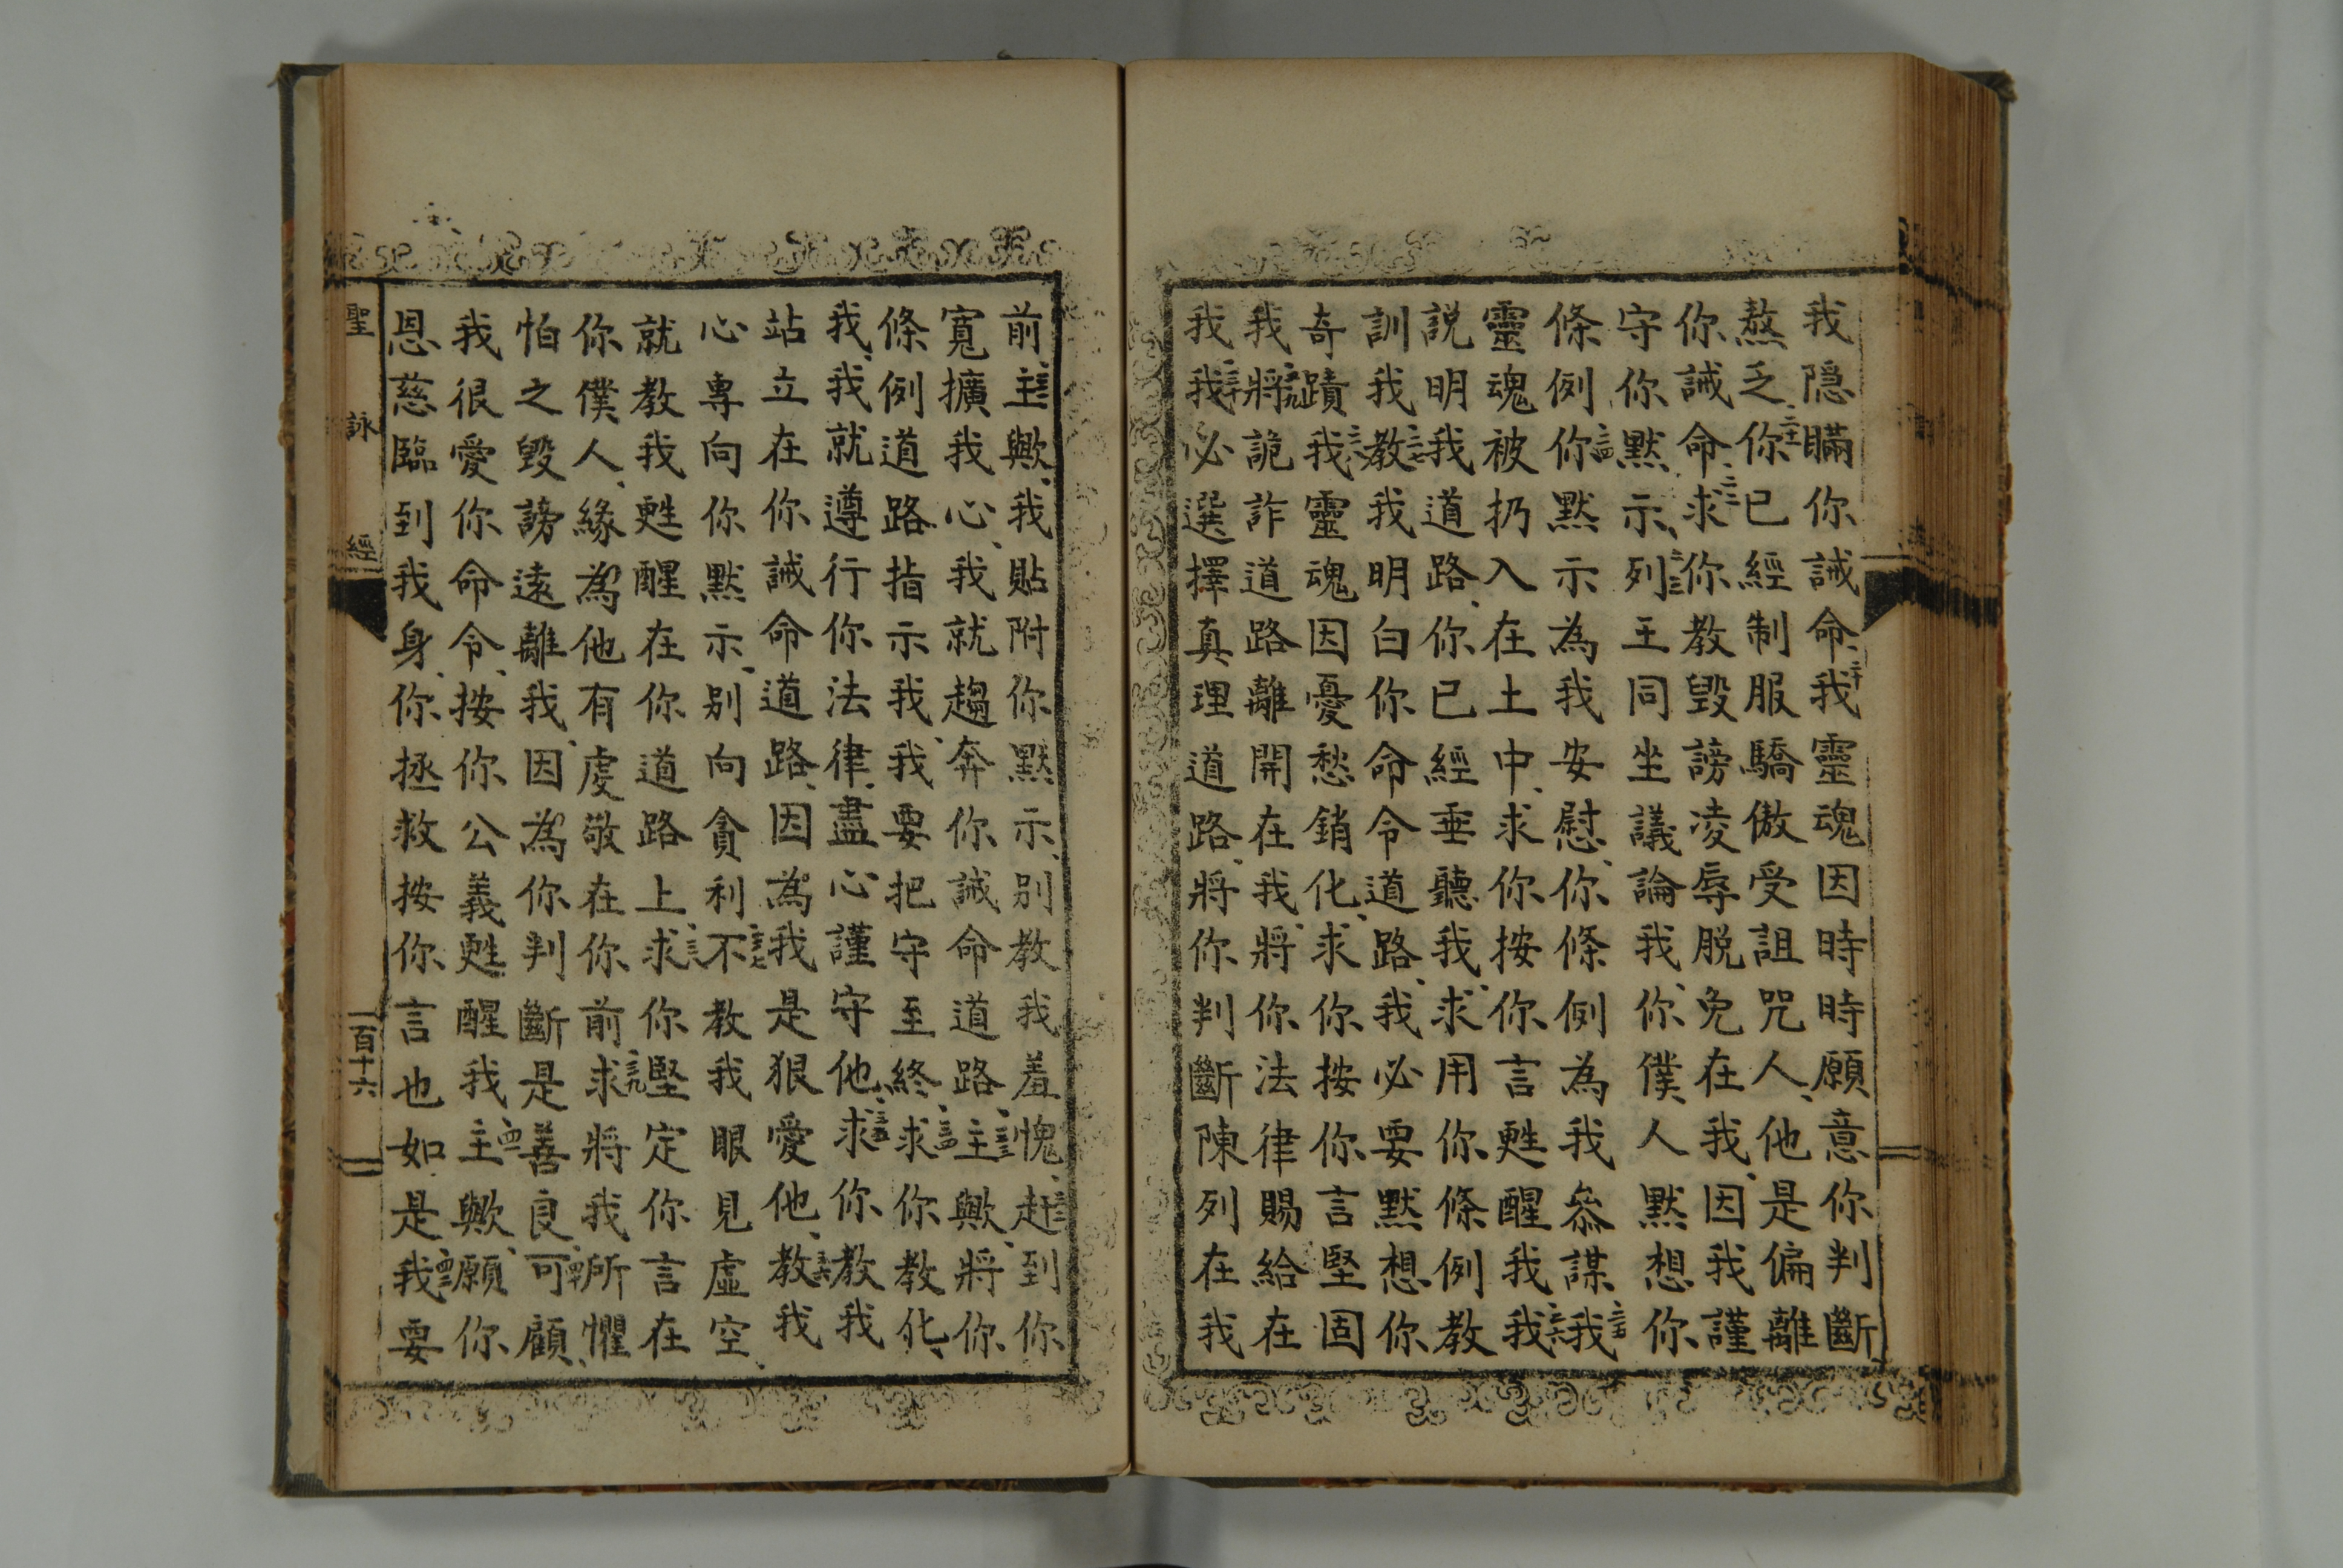 我隱瞞你誡命、二十我靈魂因時時願意你判斷
熬乏、二十一你已經制服驕傲受詛咒人、他是偏離
你誡命、二十二求你教毀謗凌辱脫免在我、因我謹
守你默示、二十三列王同坐議論我、你僕人默想你
條例、二十四你默示為我安慰、你條例為我參謀、二十五我
靈魂被扔入在土中、求你按你言甦醒我、二十六我
説明我道路、你已經垂聽我、求用你條例教
訓我、二十七教我明白你命令道路、我必要默想你
奇蹟、二十八我靈魂因憂愁銷化、求你按你言堅固
我、二十九將詭詐道路離開在我、將你法律賜給在
我、三十我必選擇真理道路、將你判斷陳列在我
前、三十一主歟、我貼附你默示、別教我羞愧、三十二趕到你
寬擴我心、我就趨奔你誡命道路、三十三主歟、將你
條例道路指示我、我要把守至終、三十四求你教化
我、我就遵行你法律、盡心謹守他、三十五求你教我
站立在你誡命道路、因為我是狠愛他、三十六教我
心專向你默示、别向貪利、三十七不教我眼見虛空、
就教我甦醒在你道路上、三十八求你堅定你言在
你僕人、緣為他有虔敬在你前、三十九求將我所懼
怕之毀謗遠離我、因為你判斷是善良、四十可顧、
我很愛你命令、按你公義甦醒我、四十一主歟、願你
恩慈臨到我身、你拯救按你言也如是、四十二我要
聖詠經
一百十六